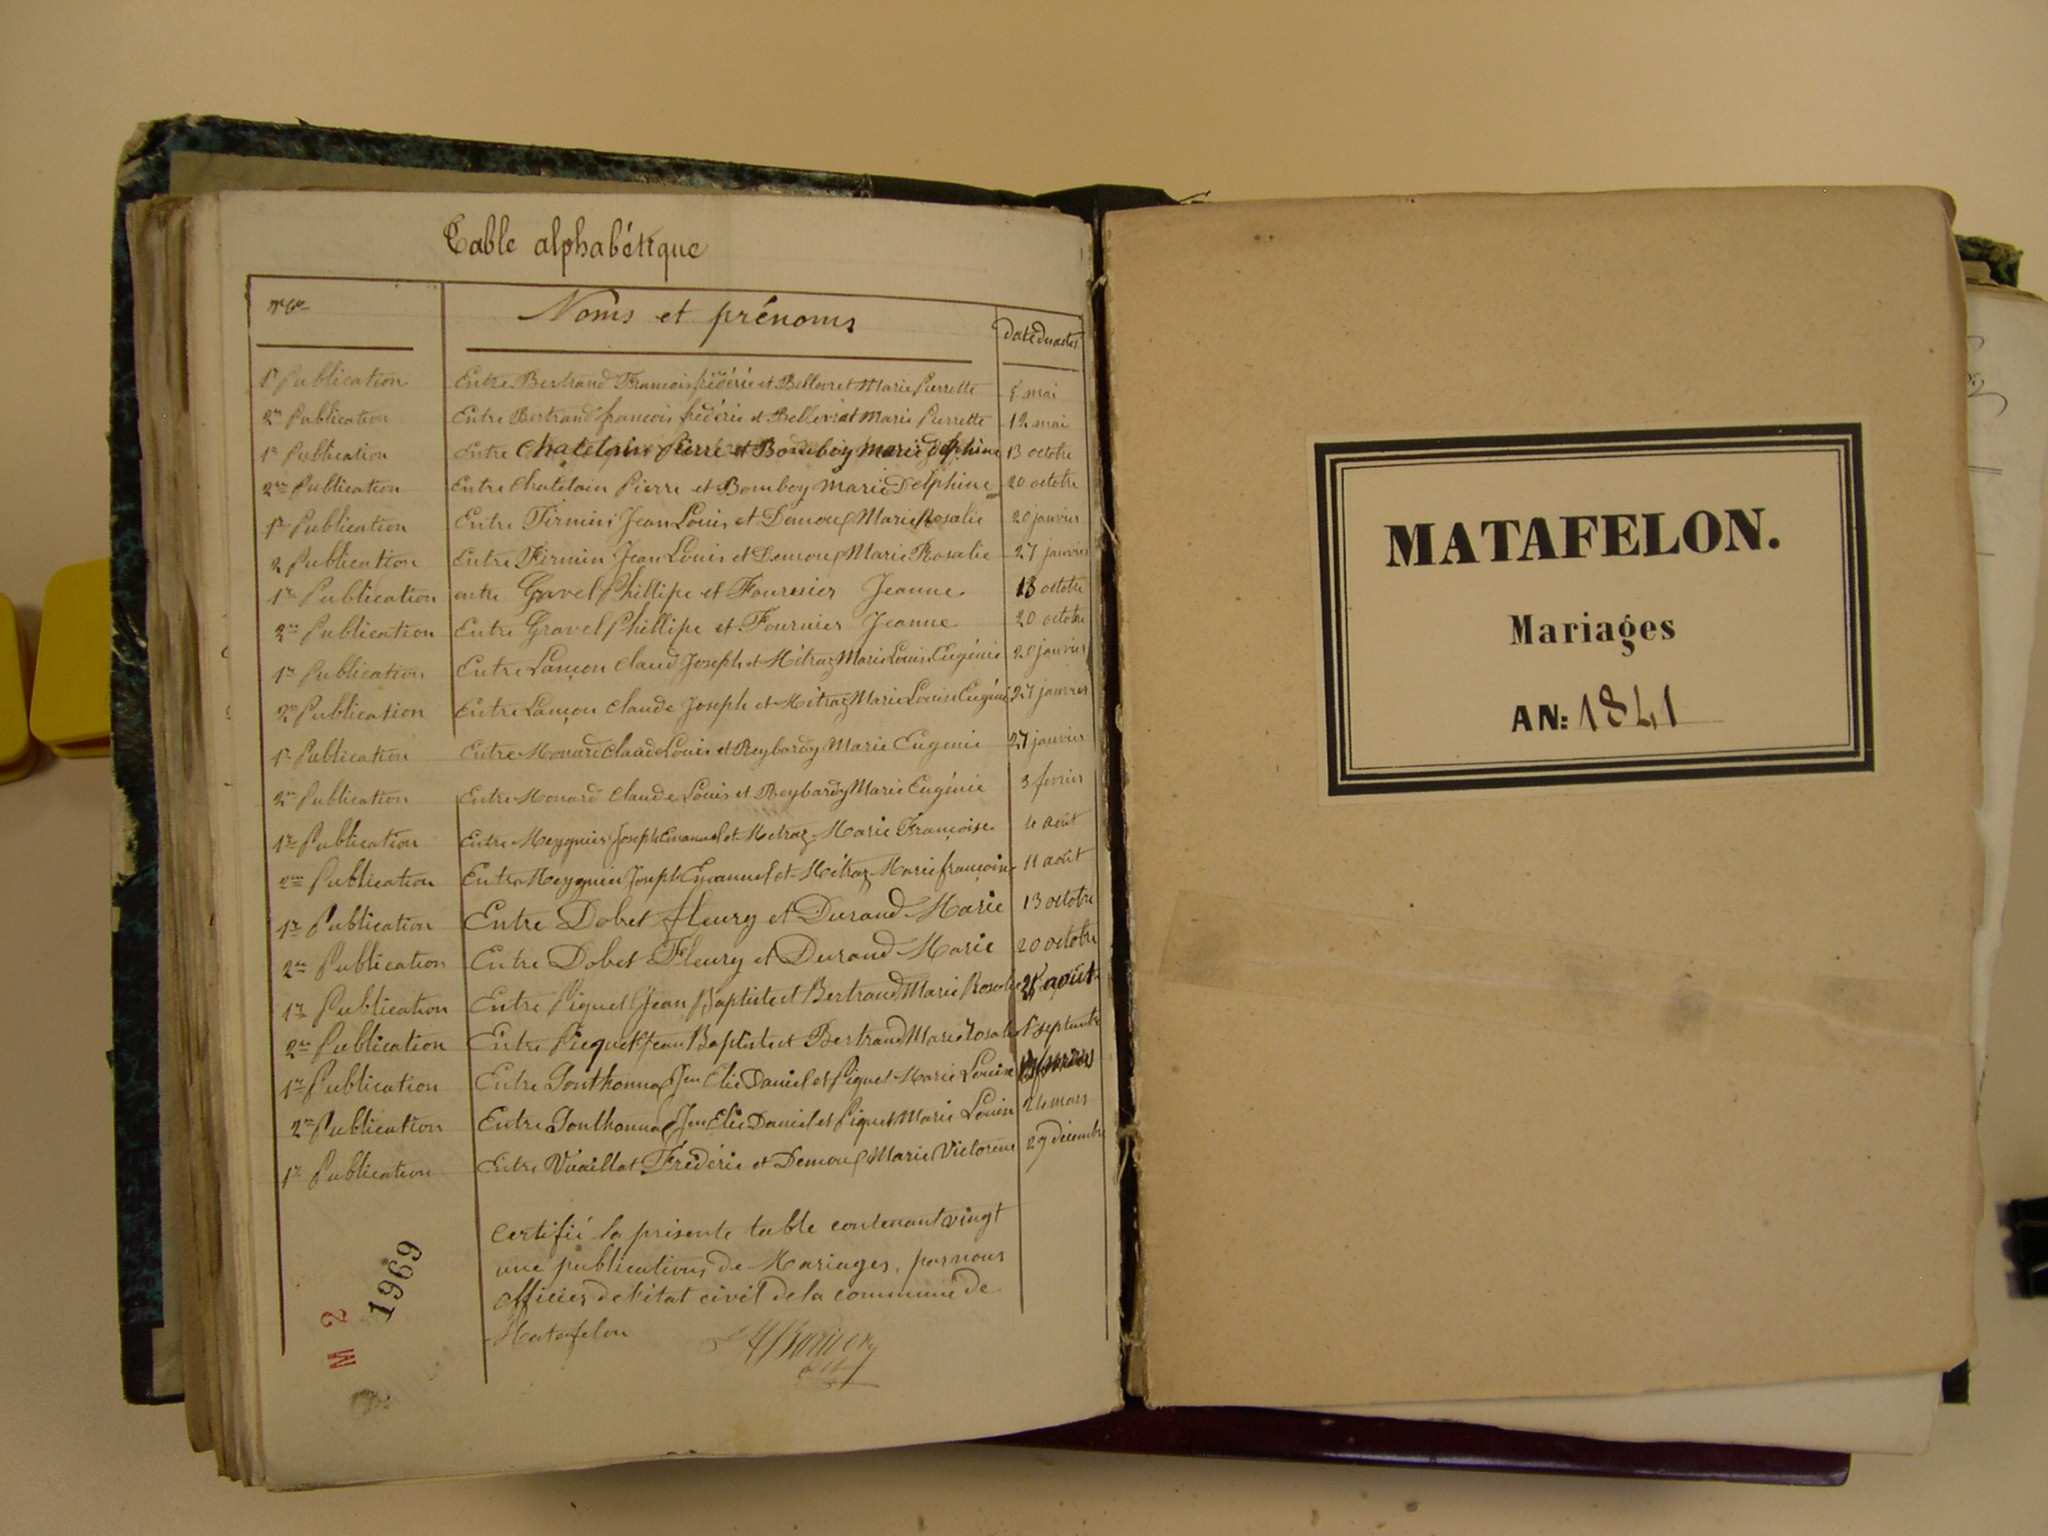 Table alphabétique
Noms et prénoms
date des actes
1re Publication Entre Bertrand François frédéric et Bellevret Marie Pierrette 5 mai
2me Publication Entre Bertrand françois frédéric et Bellevrat Marie Pierrette 12 mai
1re Publication Entre Chatelain Pierre et Bomboy Marie delphine 13 octobre
2me Publication Entre Chatelain Pierre et Bomboy Marie Delphine 20 octobre
1re Publication Entre Firmin Jean Louis et Demouf Marie Rosalie 20 janvier
2 Publication Entre Firmin Jean Louis et Demouf Marie Rosalie 27 janvier
1re Publication entre Gravel Phillipe et Fournier Jeanne 13 octobre
2me Publication Entre Gravel Phillipe et Fournier Jeanne 20 octobre
1re Publication Entre Lançon Claud Joseph et Métraz Marie Louise Eugénie 20 janvier
2me Publication Entre Lançon Claude Joseph et Métraz Marie Louise Eugénie 27 janvier
1re Publication Entre Monard Claude Louis et Reybardy Marie Eugenie 27 janvier
2me Publication Entre Monard Claude Louis et Reybardy Marie Eugénie 3 fevrier
1re Publication Entre Meygnier Joseph Emanuel et Metraz Marie Françoise 4 août
2me Publication Entre Meygnier Joseph Emanuel et Métraz Marie françoise 11 août
1re Publication Entre Dobet fleury et Durand Marie 13 octobre
2me Publication Entre Dobet Fleury et Durand Marie 20 octobre
1re Publication Entre Piquet Jean Baptiste et Bertrand Marie Rosalie 25 août
2me Publication Entre Piequet Jean Baptiste et Bertrand Marie rosalie 1er septembre
1re Publication Entre Jean Elie Daniel et Piquet Marie Louise
2me Publication Entre Jean Elie Daniel et Piquet Marie Louise 24 mars
1re Publication Entre Vuaillat Frédéric et Demouf Marie Victorine 29 décembre
Certifié la présente table contenant vingt
une publications de Mariages, par nous
officier de l'état civil de la commune de
Matafelon
M 2
1969
MATAFELON.
Mariages
AN: 1841